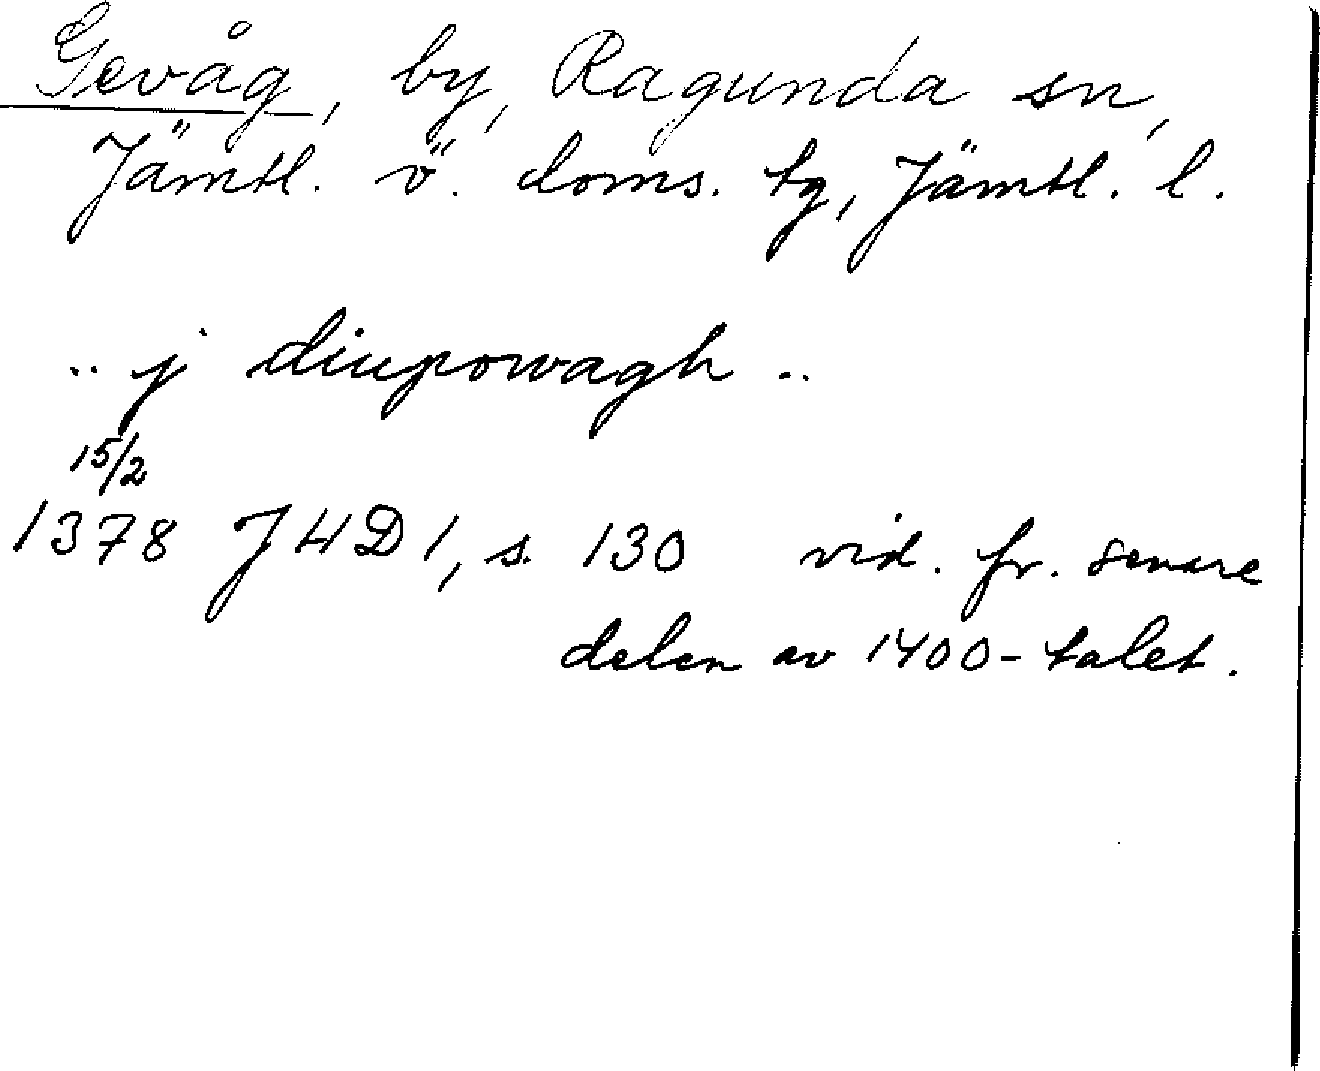 Gevåg, by, Ragunda sn,
Jämtl. ö. doms. tg, Jämtl. l.
.. j diupowagh ..
15/2
1378 JHD 1, s. 130 vid. fr. senare
delen av 1400-talet.